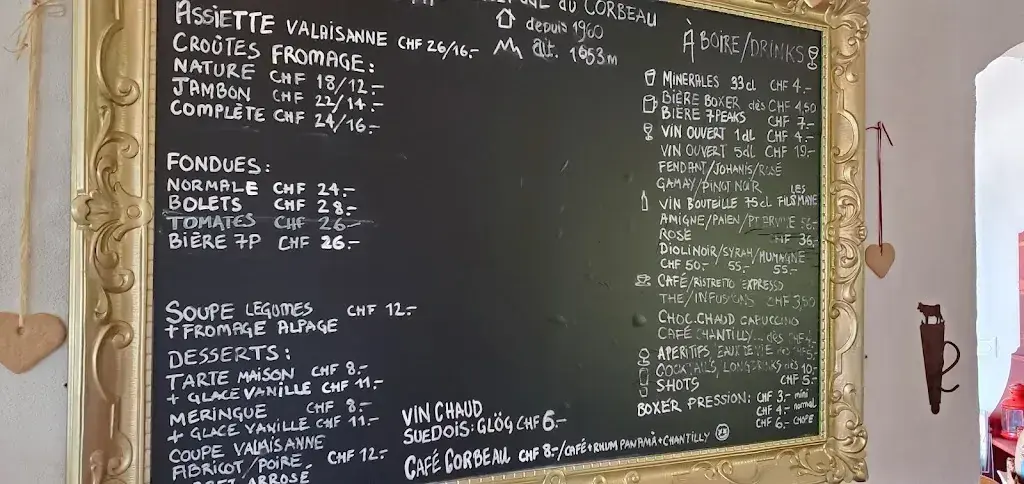 DU CORBEAU
depuis 1960
alt. 1653m
ASSIETTE VALAISANNE CHF 26/16.-
CROÛTES FROMAGE:
NATURE CHF 18/12.-
JAMBON CHF 22/14.-
COMPLÈTE CHF 24/16.-
FONDUES:
NORMALE CHF 24.-
BOLETS CHF 28.-
TOMATES CHF 26.-
BIÈRE 7P CHF 26.-
SOUPE LÉGUMES CHF 12.-
+ FROMAGE ALPAGE
DESSERTS:
TARTE MAISON CHF 8.-
+ GLACE VANILLE CHF 11.-
MERINGUE CHF 8.-
+ GLACE VANILLE CHF 11.-
COUPE VALAISANNE
ABRICOT/POIRE CHF 12.-
ARROSÉ
VIN CHAUD
SUEDOIS: GLÖG CHF 6.-
CAFÉ CORBEAU CHF 8.-/CAFÉ+RHUM PANAMA+CHANTILLY
À BOIRE/DRINKS
MINERALES 33cl CHF 4.-
BIÈRE BOXER dès CHF 4.50
BIÈRE 7PEAKS CHF 7.-
VIN OUVERT 1dl CHF 4.-
VIN OUVERT 5dl CHF 19.-
FENDANT/JOHANIS/ROSÉ
GAMAY/PINOT NOIR
VIN BOUTEILLE 75cl LES FILS MAYE
AMIGNE/PAIEN/
ROSÉ 36.-
DIOLINOIR/SYRAH/HUMAGNE
CHF 50.- 55.- 55.-
CAFÉ/RISTRETTO EXPRESSO
THE/INFUSIONS CHF 3.50
CHOC.CHAUD CAPUCCINO
CAFÉ CHANTILLY... dès CHF 4.-
APERITIFS, EAUX DE VIE dès CHF 5.-
COCKTAILS, LONGDRINKS dès 10.-
SHOTS CHF 5.-
BOXER PRESSION: CHF 3.- mini
CHF 4.- normal
CHF 6.- CHOPE